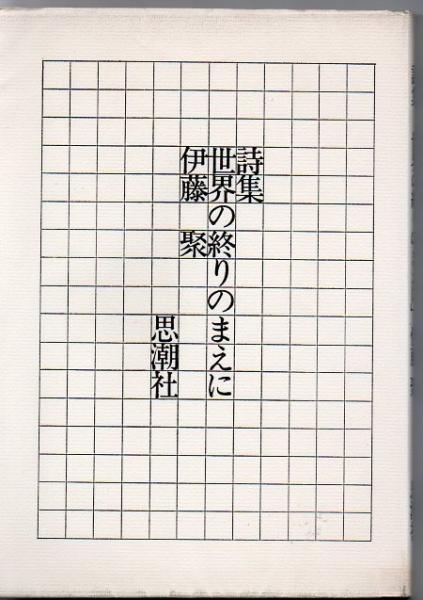 詩集
世界の終りのまえに
伊藤 聚
思潮社